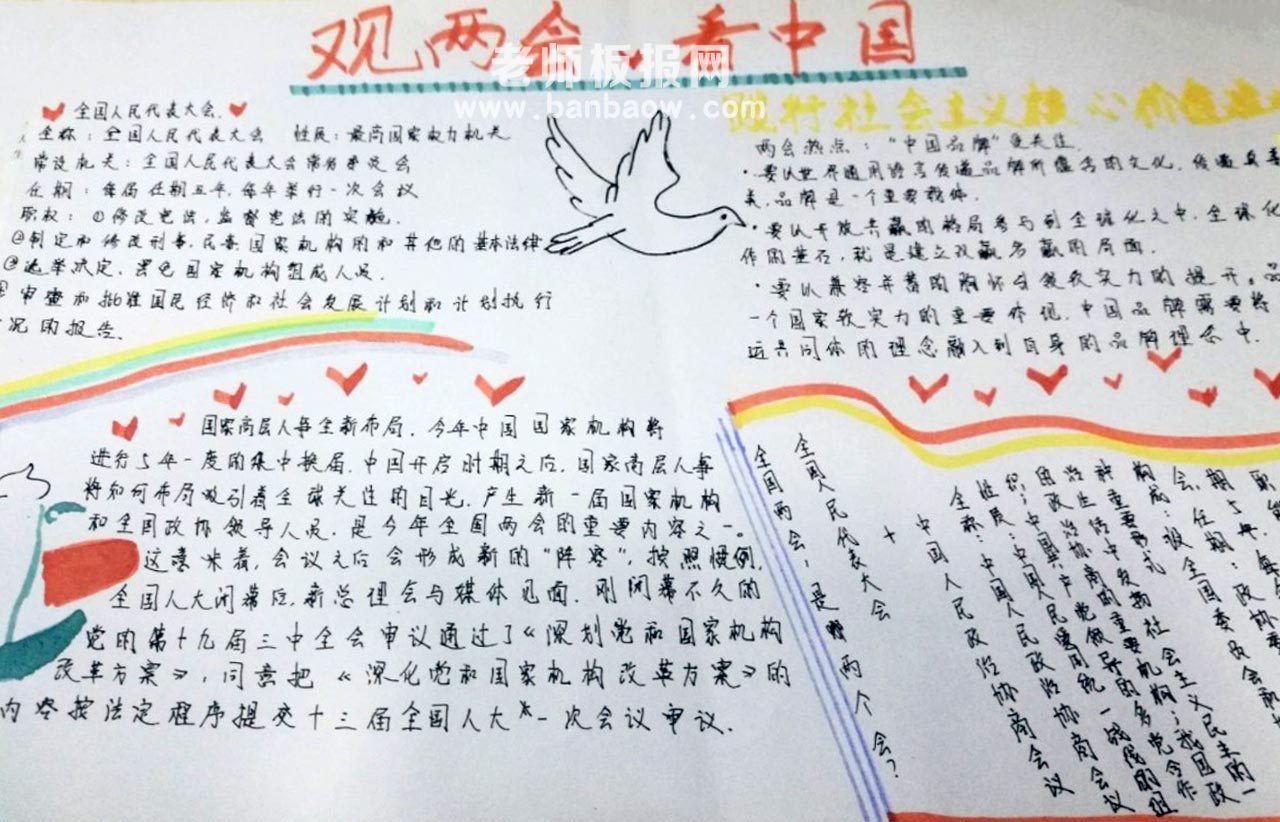 观两会·看中国
老师板报网
www.banbaow.com
全国人民代表大会.
全称：全国人民代表大会 性质：最高国家权力机关
常设机关：全国人民代表大会常务委员会
任期：每届任期五年，每年举行一次会议
职权：①修改宪法，监督宪法的实施.
制定和修改刑事，民事国家机构的和其他的基本法律
选举决定，罢免国家机构组成人员.
审查和批准国民经济和社会发展计划和计划执行
况的报告.
践行社会主义核心价值
两会热点：“中国品牌”受关注.
·要以世界通用语言传递品牌所蕴含的文化，传递真善
美，品牌是一个重要载体.
·要以开放共赢的格局参与到全球化之中，全球化
作的基石，就是建立双赢多赢的局面.
·要以兼容并蓄的胸怀引领软实力的提升，品
一个国家软实力的重要体现，中国品牌需要将
运共同体的理念融入到自身的品牌理念中.
国家高层人事全新布局，今年中国国家机构将
进行5年一度的集中换届，中国开启时期之后，国家高层人事
将如何布局吸引着全球关注的目光，产生新一届国家机构
和全国政协领导人员，是今年全国两会的重要内容之一。
这意味着，会议之后会形成新的“阵容”，按照惯例，
全国人大闭幕后，新总理会与媒体见面，刚闭幕不久的
党的第十九届三中全会审议通过了《深划党和国家机构
改革方案》，同意把《深化党和国家机构改革方案》的
内容按法定程序提交十三届全国人大一次会议审议.
全国两会：是哪两个会？
全国人民代表大会
+
中国人民政治协商会议
全称：中国人民政治协商会议
性质：中国人民爱国统一战线的组
织；中国共产党领导的多党合作
治政治协商的重要机构；我国政
治生活中发扬社会主义民主的一
种重要形式
构成：设全国委员会
会，任期：政协委
期5年，每
职权